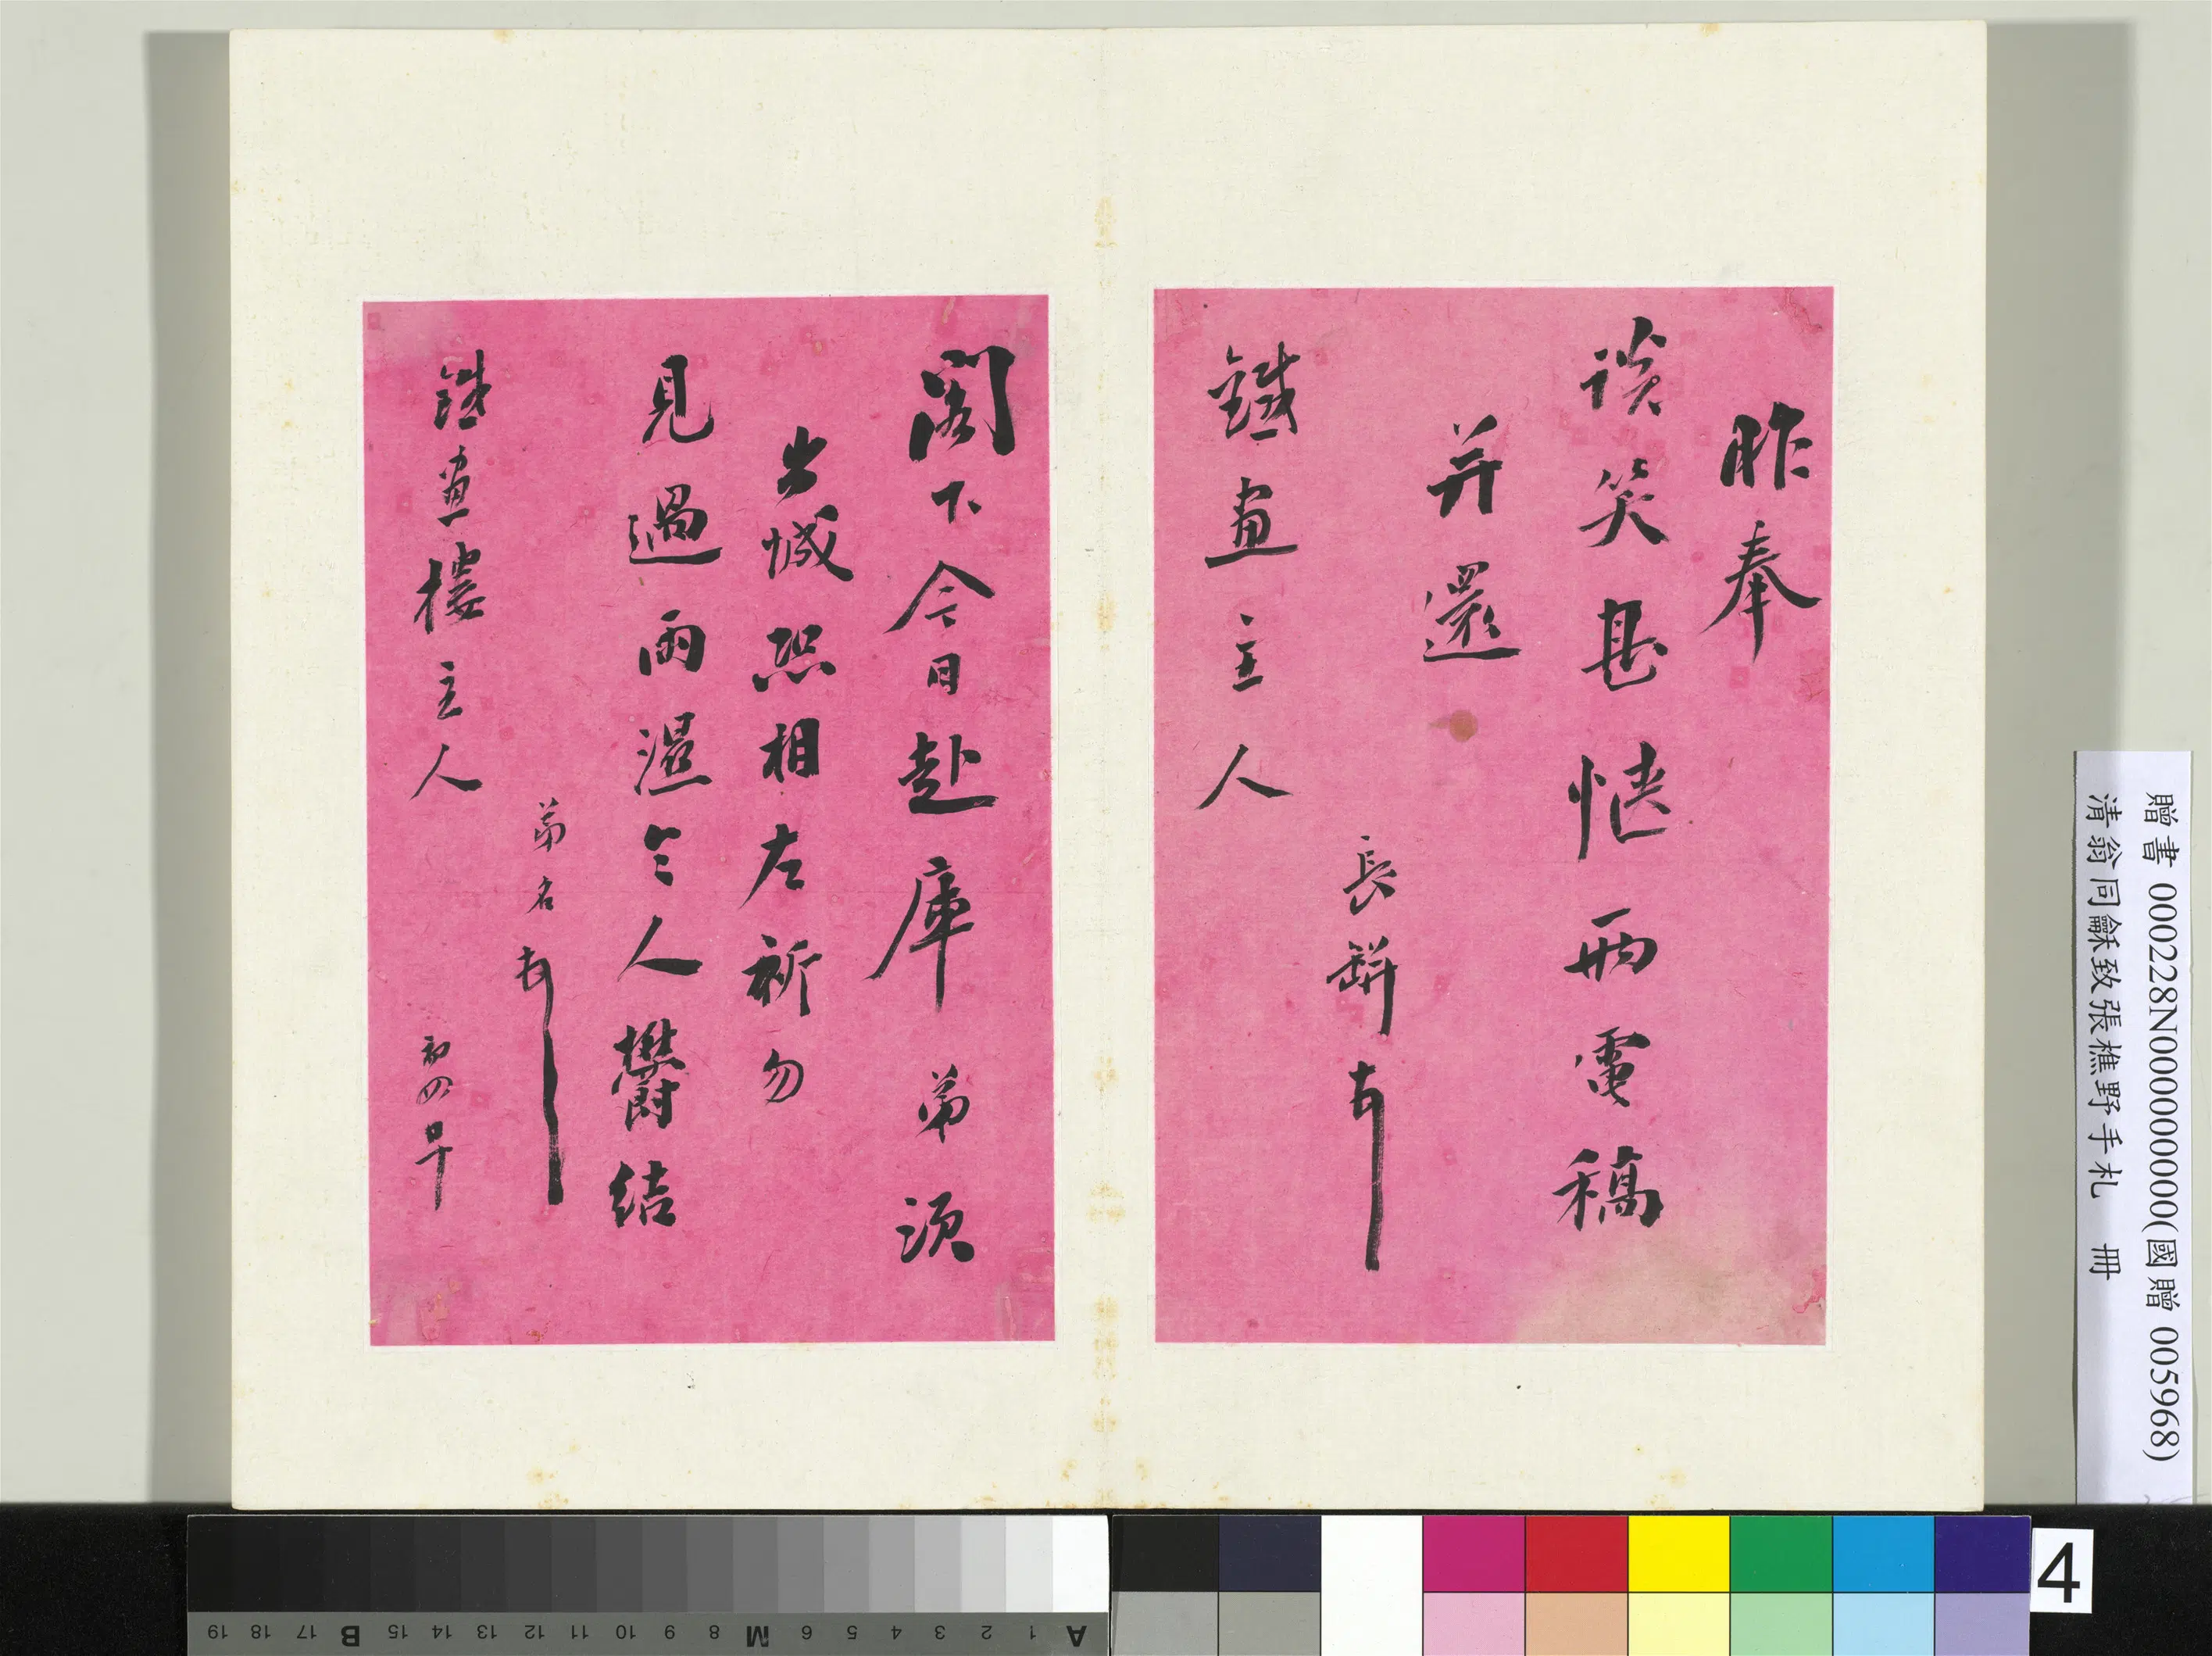 昨奉
談笑甚愜兩電稿
并還
鐵畫主人
長缾頓
閣下今日赴庫弟須
出城恐相左祈勿
見過雨濕令人鬱結
弟名頓
鐵畫樓主人
初四早
贈書 000228N000000000(國贈 005968)
清翁同龢致張樵野手札 冊
4
A 1 2 3 4 5 6 M 8 9 10 11 12 13 14 15 B 17 18 19